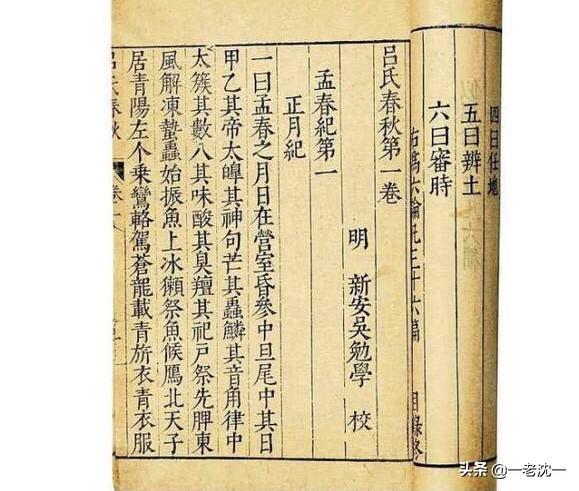 四曰任地
五曰辨土
六曰審時
右為六論凡三十六篇
目録終
呂氏春秋第一卷
明 新安吳勉學 校
孟春紀第一
正月紀
一曰孟春之月日在營室昏參中旦尾中其日
甲乙其帝太皥其神句芒其蟲鱗其音角律中
太簇其數八其味酸其臭羶其祀戶祭先脾東
風解凍蟄蟲始振魚上冰獺祭魚候鴈北天子
居青陽左个乘鸞輅駕蒼龍載青旂衣青衣服
呂氏春秋 卷一
头条 @一老沈一